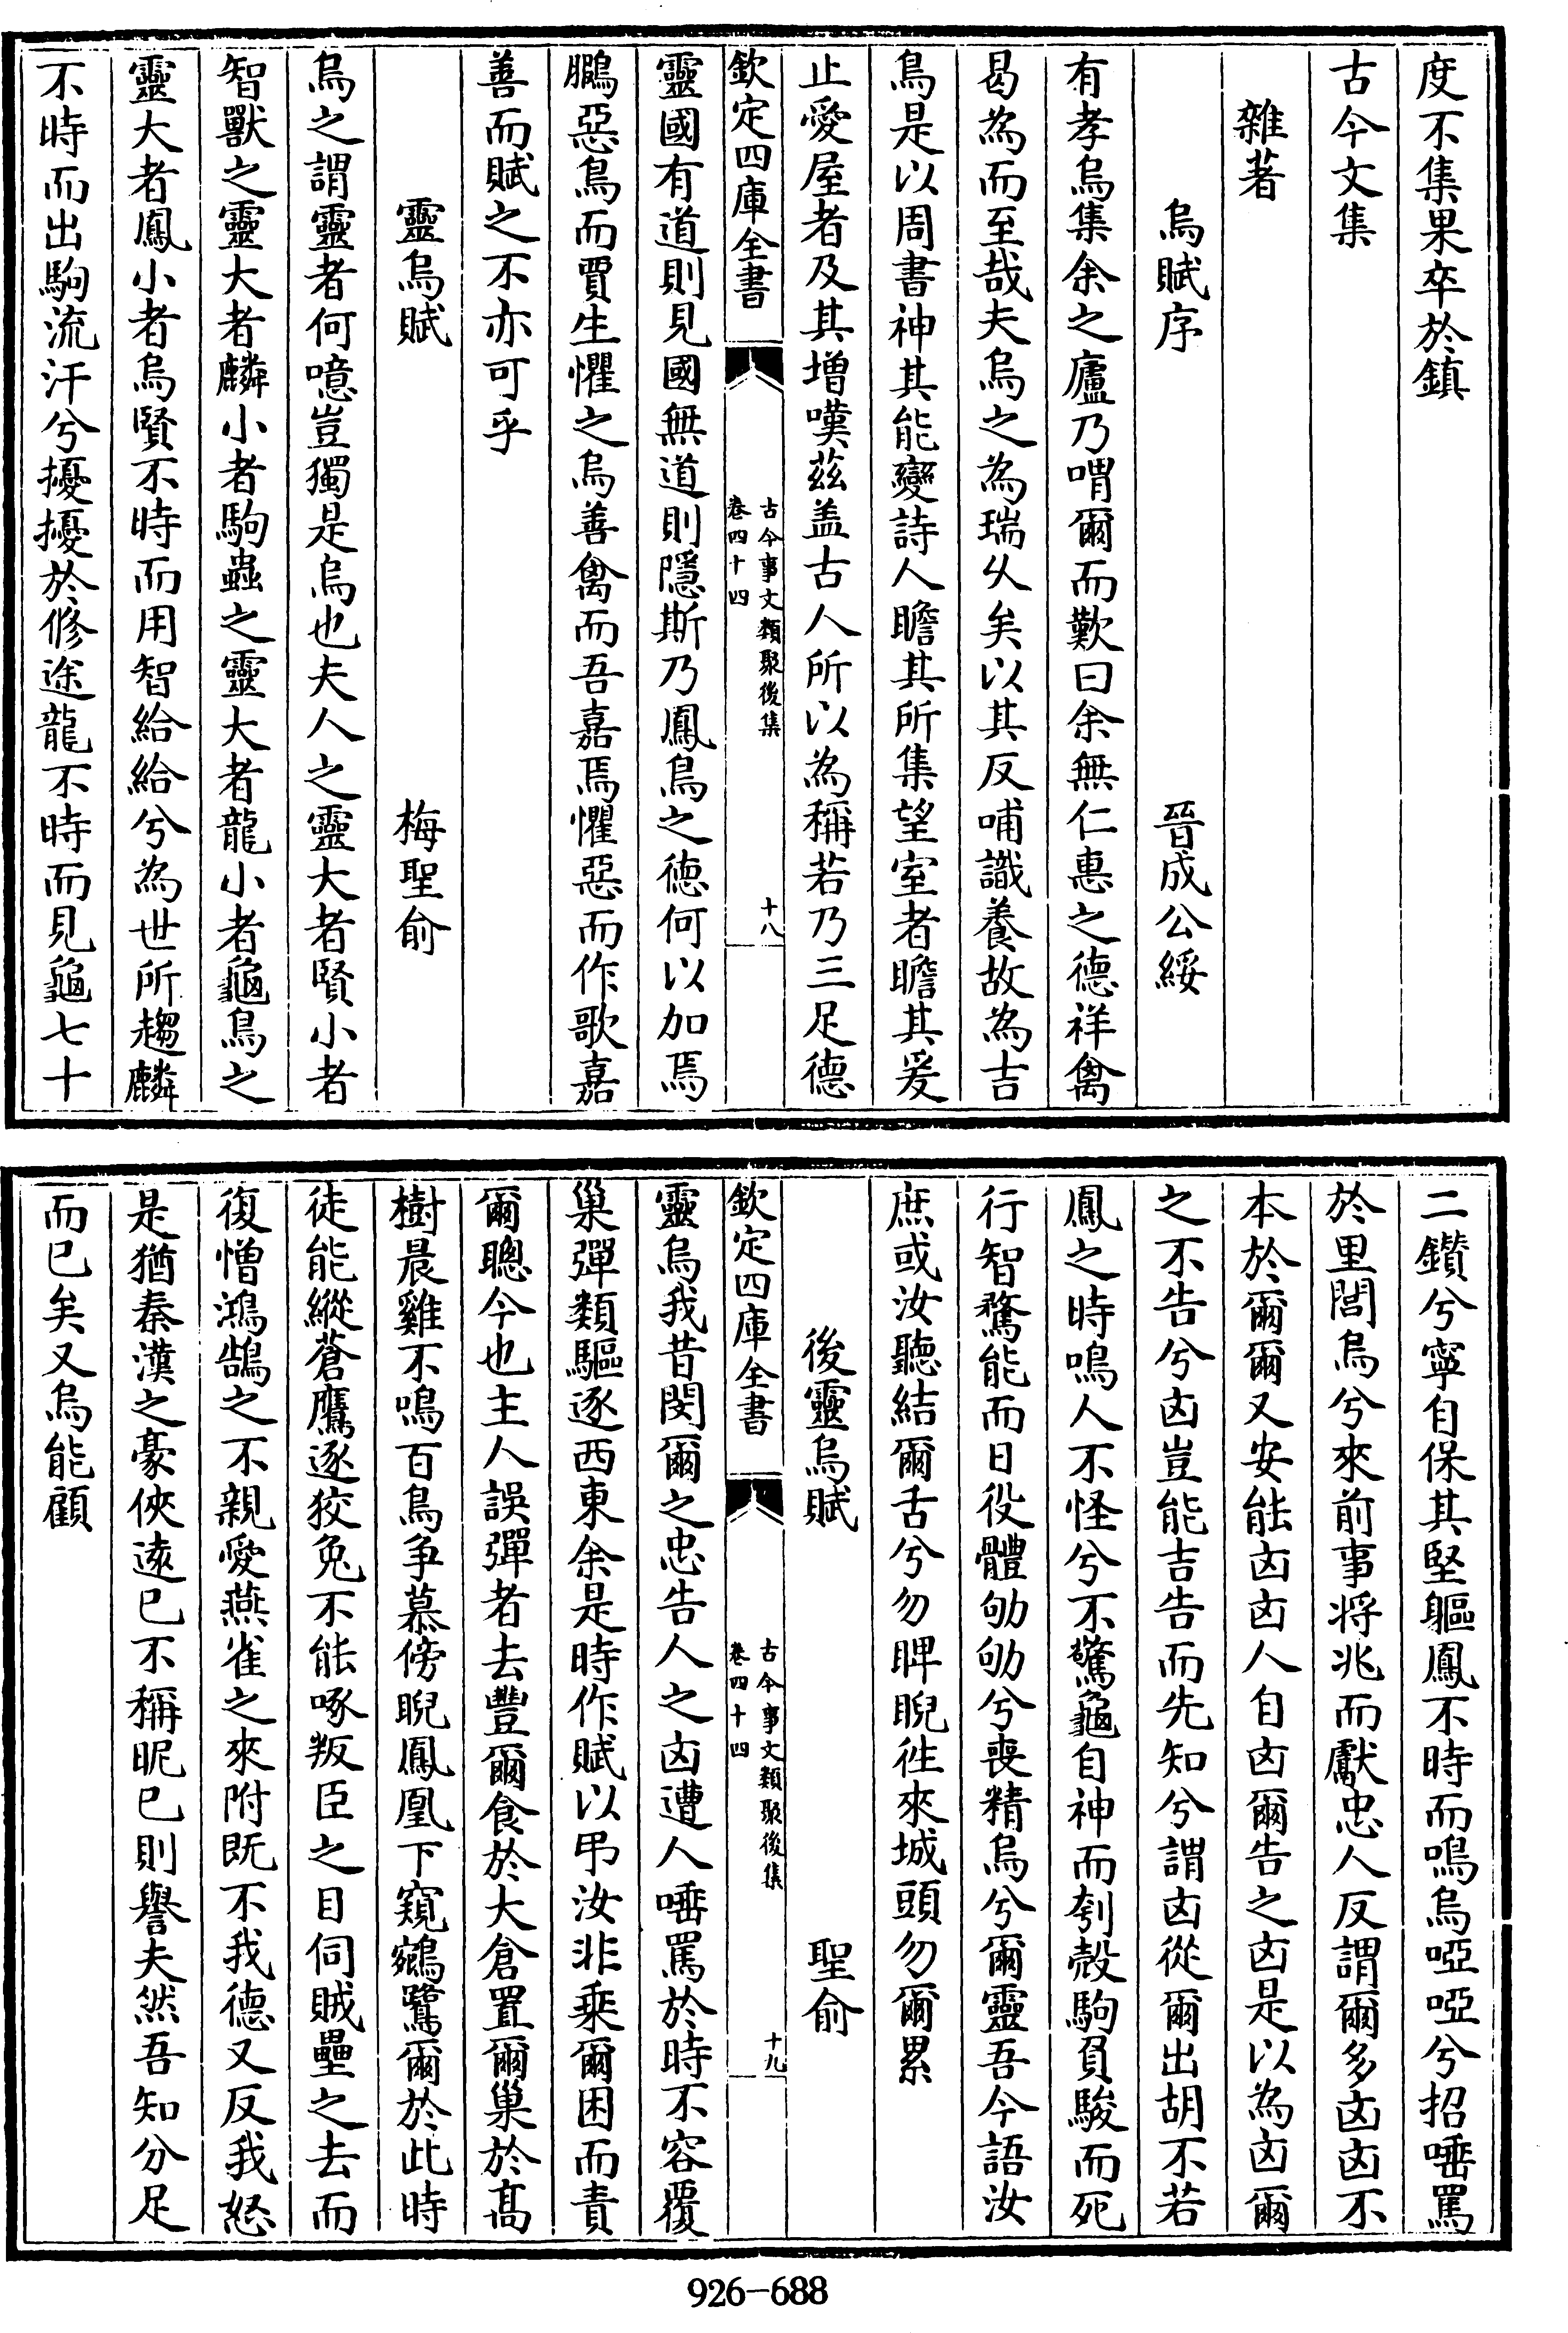 度不集果卒於鎮
古今文集
雜著
烏賦序　晉成公綏
有孝烏集余之廬乃喟爾而歎曰余無仁惠之德祥禽
曷為而至哉夫烏之為瑞乆矣以其反哺識養故為吉
鳥是以周書神其能變詩人瞻其所集望室者瞻其爰
止愛屋者及其増嘆茲盖古人所以為稱若乃三足德
欽定四庫全書
古今事文類聚後集
卷四十四
十八
靈國有道則見國無道則隱斯乃鳳鳥之徳何以加焉
鵩惡鳥而賈生懼之烏善禽而吾嘉焉懼惡而作歌嘉
善而賦之不亦可乎
靈烏賦　梅聖俞
烏之謂靈者何噫豈獨是烏也夫人之靈大者賢小者
智獸之靈大者麟小者駒蟲之靈大者龍小者龜鳥之
靈大者鳳小者烏賢不時而用智給給兮為世所趨麟
不時而出駒流汗兮擾擾於修途龍不時而見龜七十
二鑚兮寧自保其堅軀鳳不時而鳴烏啞啞兮招唾罵
於里閭烏兮來前事将兆而獻忠人反謂爾多凶凶不
本於爾爾又安能凶凶人自凶爾告之凶是以為凶爾
之不告兮凶豈能吉告而先知兮謂凶從爾出胡不若
鳳之時鳴人不怪兮不驚龜自神而刳殻駒負駿而死
行智騖能而日役體劬劬兮喪精烏兮爾靈吾今語汝
庶或汝聽結爾舌兮勿睥睨徃來城頭勿爾累
後靈烏賦　聖俞
欽定四庫全書
古今事文類聚後集
卷四十四
十九
靈烏我昔閔爾之忠告人之凶遭人唾罵於時不容覆
巢彈類驅逐西東余是時作賦以弔汝非乗爾困而責
爾聰今也主人誤彈者去豐爾食於大倉置爾巢於髙
樹晨雞不鳴百鳥争慕傍睨鳳凰下窺鵷鷺爾於此時
徒能縱蒼鷹逐狡兔不能啄叛臣之目伺賊壘之去而
復憎鴻鵠之不親愛燕雀之來附既不我德又反我怒
是猶秦漢之豪俠逺已不稱昵已則譽夫然吾知分足
而已矣又烏能顧
926-688